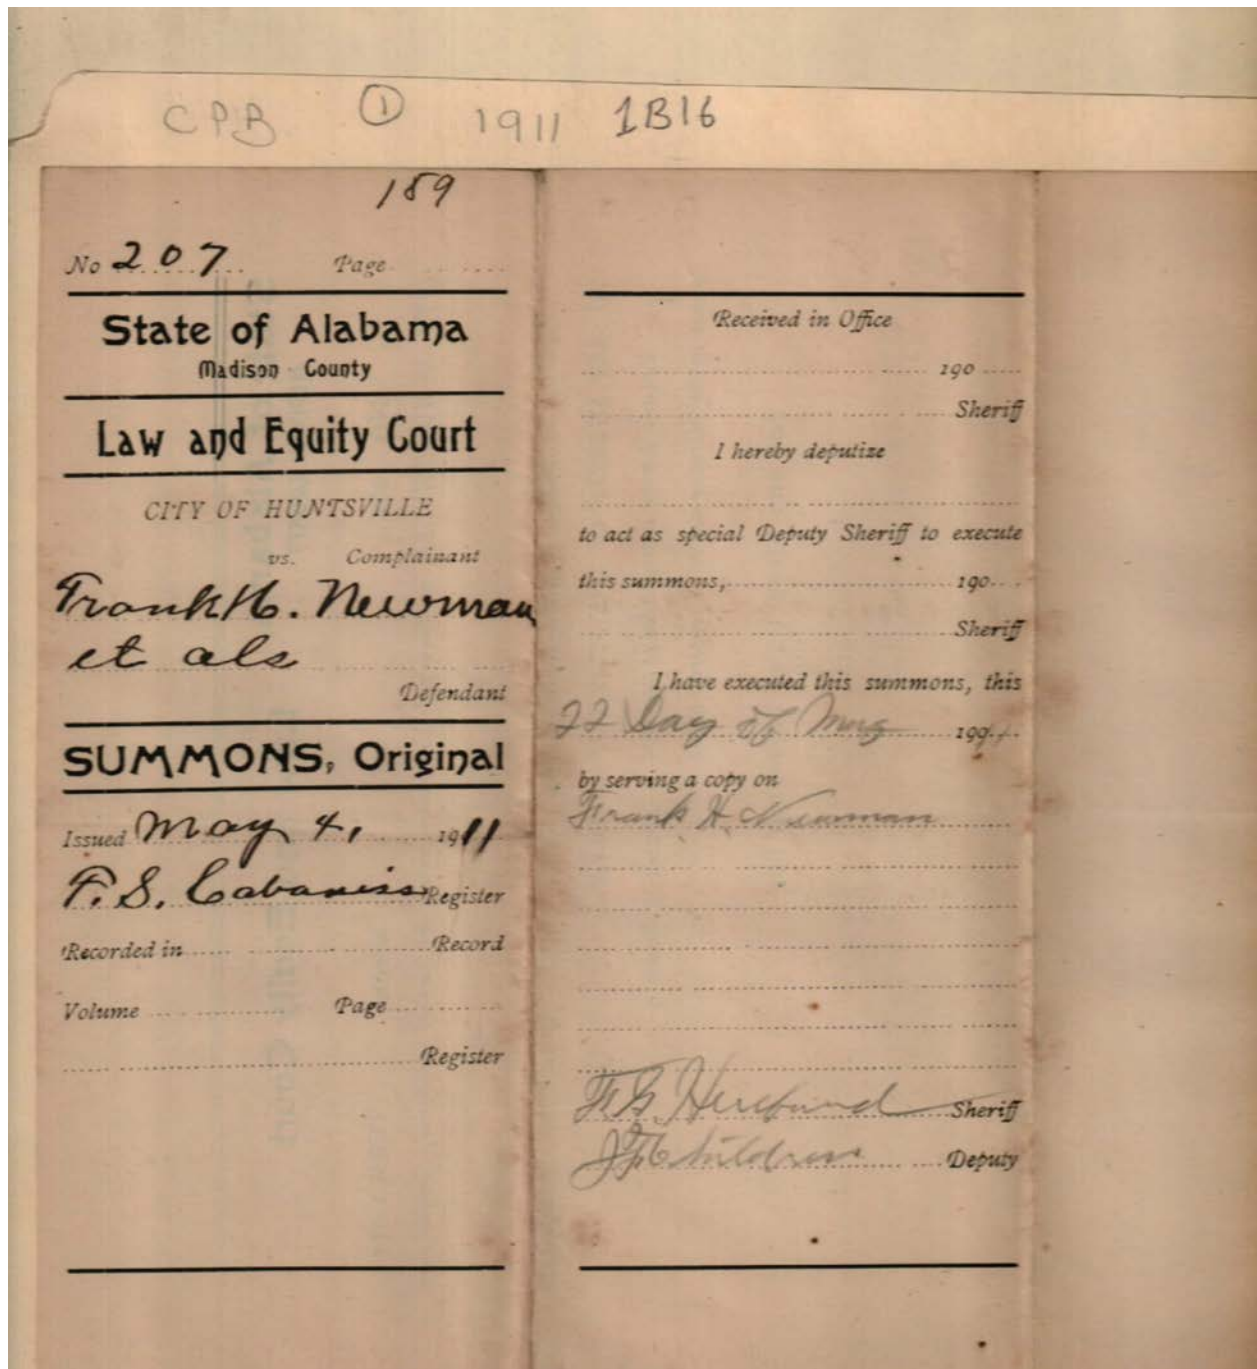 CPB ① 1911 1B16
189
No 207 Page
State of Alabama
Madison County
Law and Equity Court
CITY OF HUNTSVILLE
vs. Complainant
Frank H. Newman
et als
Defendant
SUMMONS, Original
Issued May 4, 1911
Register
Recorded in Record
Volume Page
Register
Received in Office
190
Sheriff
I hereby deputize
to act as special Deputy Sheriff to execute
this summons, 190
Sheriff
I have executed this summons, this
22 Day of 191
by serving a copy on
Frank H. Newman
Sheriff
Deputy